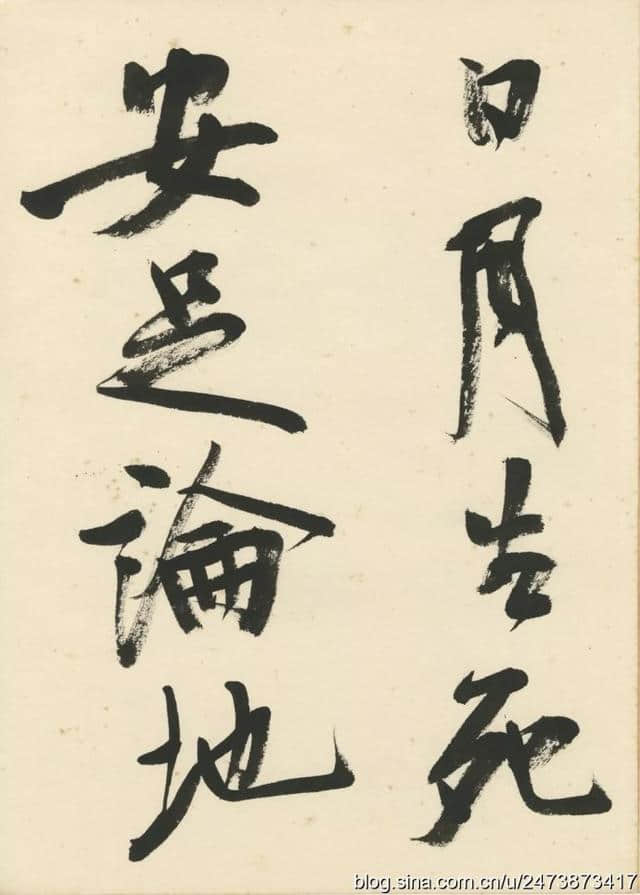 日月生死
安足論地
blog.sina.com.cn/u/2473873417